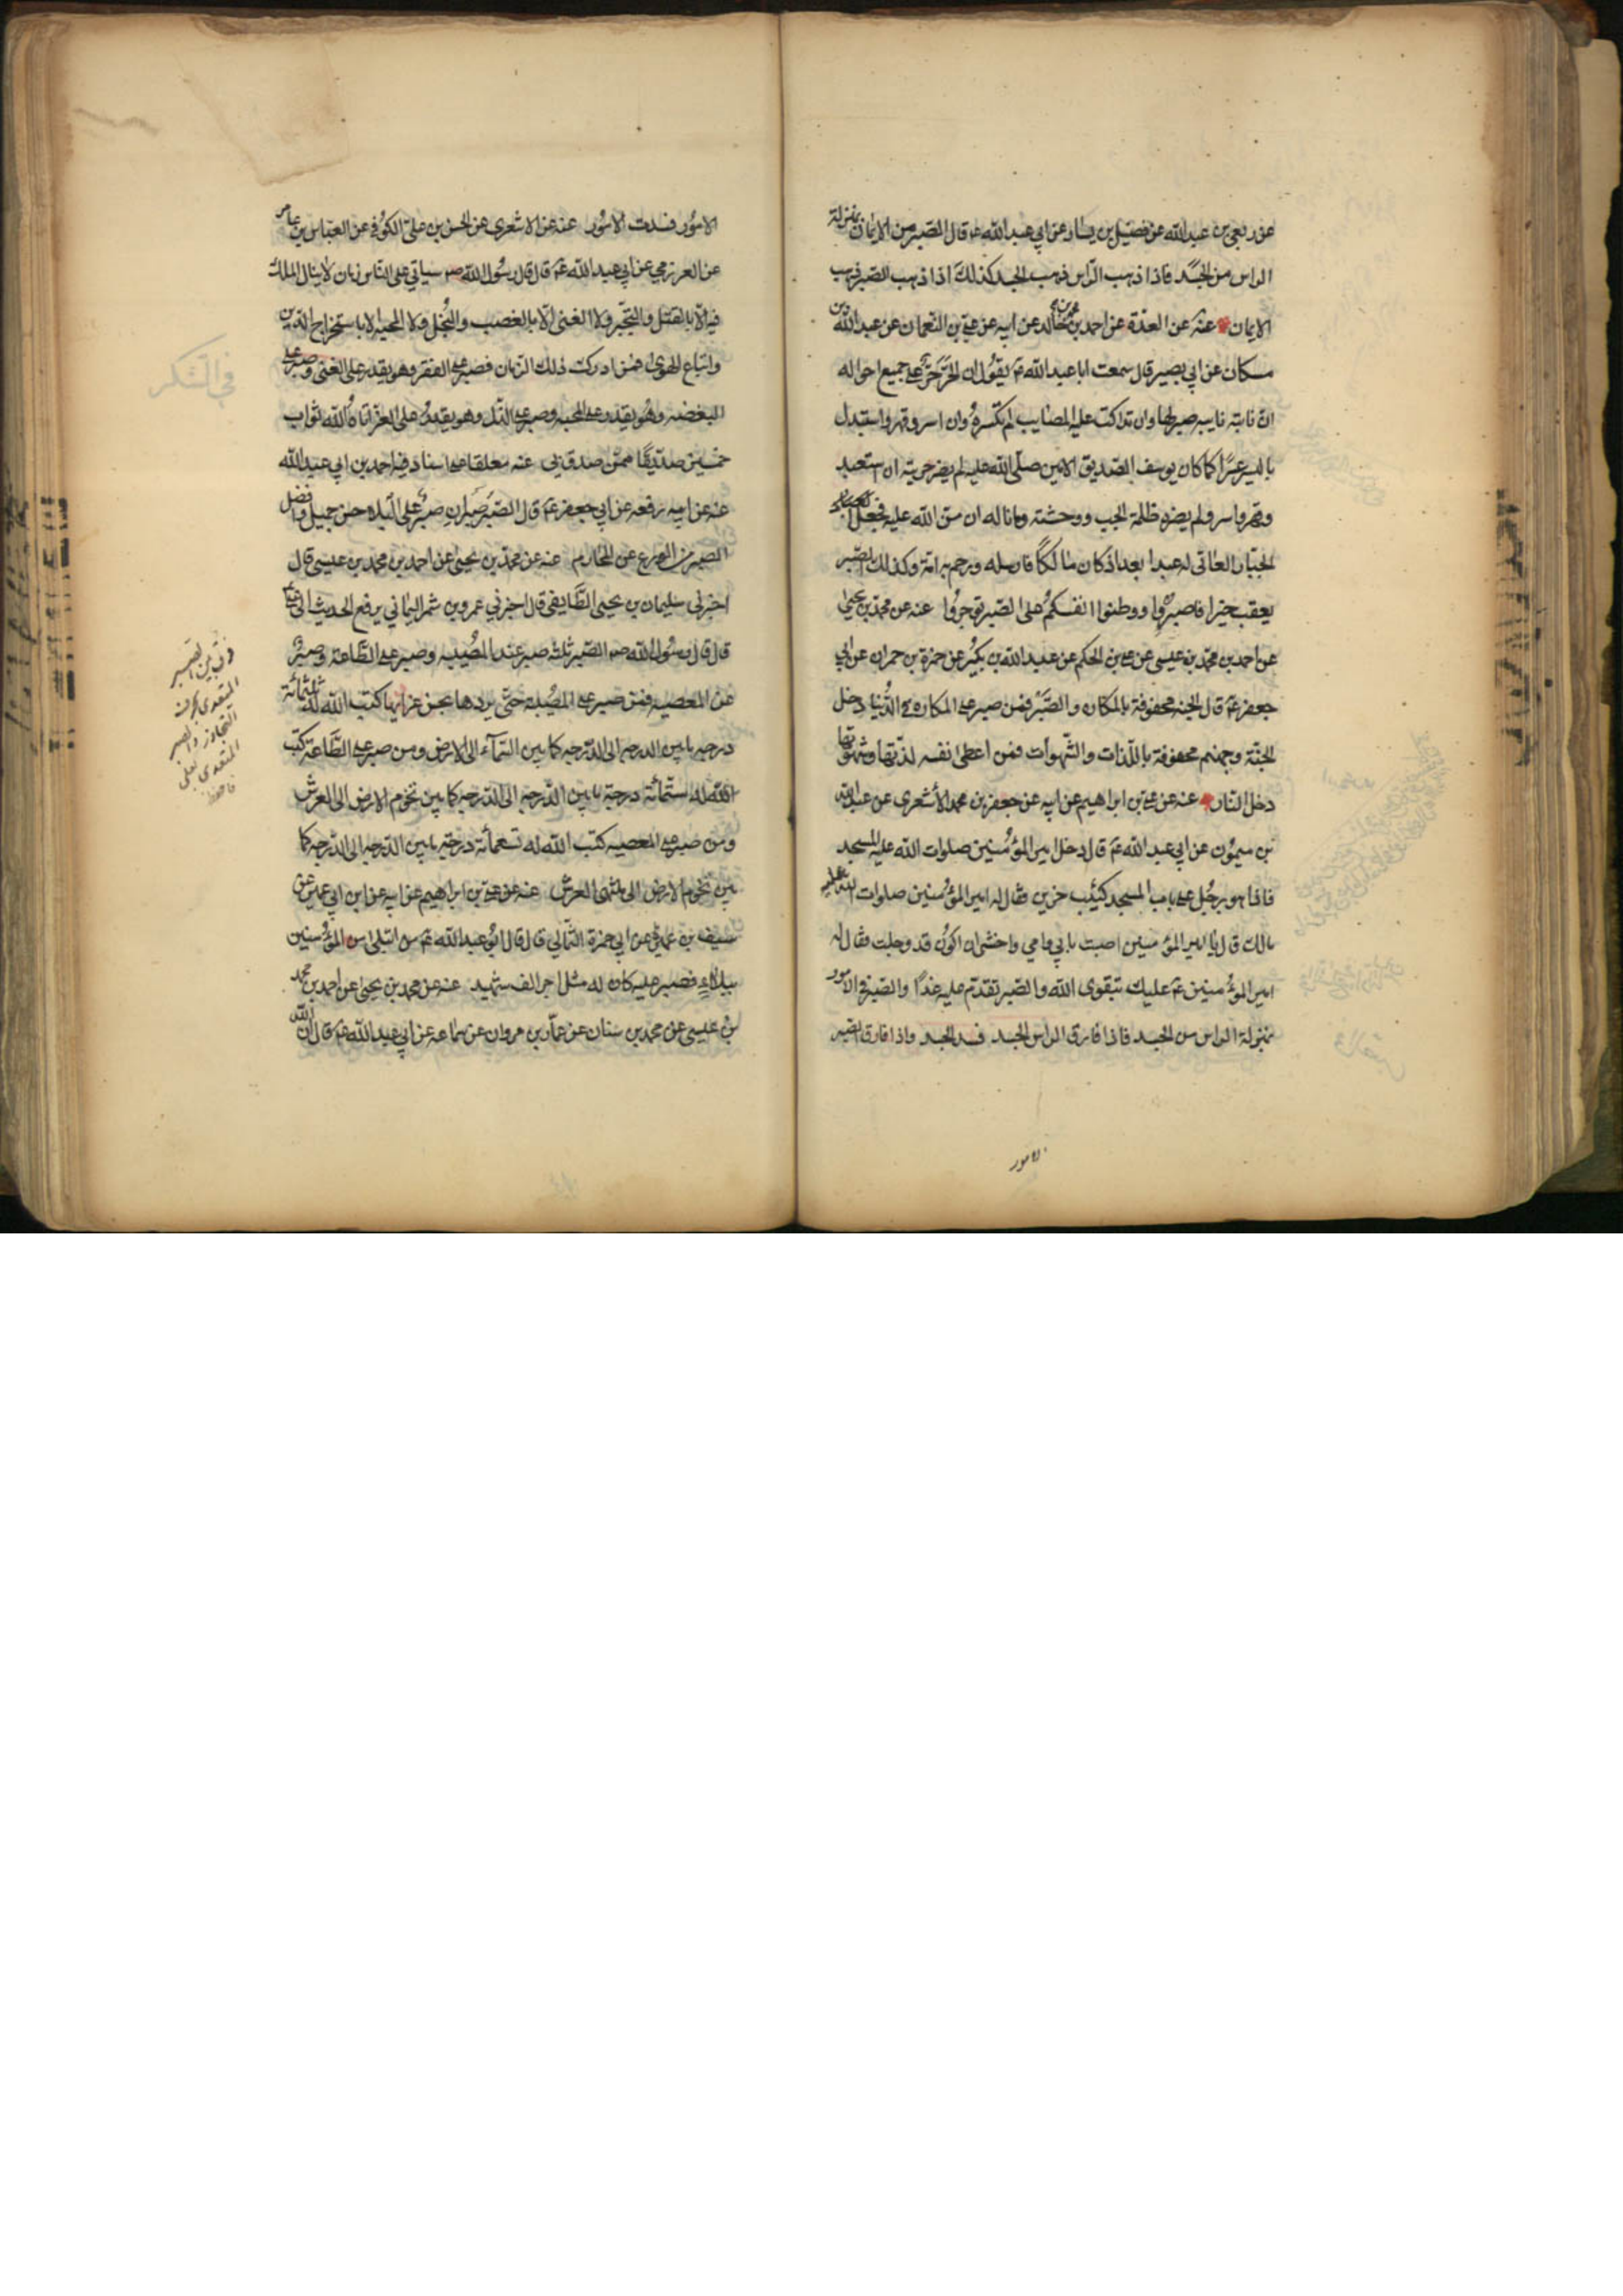 عن ربعي بن عبد الله عن فضيل بن يسار عن ابي عبد الله عم قال الصبر من الايمان بمنزلة
الراس من الجسد فاذا ذهب الراس ذهب الجسد كذلك اذا ذهب الصبر ذهب
الايمان عنه عن العدة عن احمد بن محمد بن خالد عن ابيه عن علي بن النعمان عن عبد الله بن
مسكان عن ابي بصير قال سمعت ابا عبد الله عم يقول ان الحر حر على جميع احواله
ان نابته نايبه صبر لها وان تداكت عليه المصايب لم تكسره وان اسر وقهر واستبدل
باليسر عسرا كما كان يوسف الصديق الامين صلى الله عليه لم يضر حريته ان استعبد
وقهر واسر ولم يضره ظلمة الجب ووحشته وما ناله ان من الله عليه فجعل
الجبار العاتى له عبدا بعد اذ كان مالكا فارسله ورحم به امة وكذلك الصبر
يعقب خيرا فاصبروا ووطنوا انفسكم على الصبر توجروا عنه عن محمد بن يحيى
عن احمد بن محمد بن عيسى عن علي بن الحكم عن عبد الله بن بكير عن حمزة بن حمران عن ابي
جعفر عم قال الجنه محفوفة بالمكاره والصبر فمن صبر على المكاره في الدنيا دخل
الجنة وجهنم محفوفة باللذات والشهوات فمن اعطى نفسه لذتها وشهوتها
دخل النار عنه عن علي بن ابراهيم عن ابيه عن جعفر بن محمد الأشعرى عن عبد الله
بن ميمون عن ابي عبد الله عم قال دخل امير المؤمنين صلوات الله عليه المسجد
فاذا هو برجل على باب المسجد كئيب حزين فقال له امير المؤمنين صلوات الله عليه
مالك قال يا امير المؤمنين اصبت بابي وامي واخشى ان اكون قد وجلت فقال له
امير المؤمنين عم عليك بتقوى الله والصبر تقدم عليه غدا والصبر في الامور
بمنزلة الراس من الجسد فاذا فارق الراس الجسد فسد الجسد واذا فارق الصبر
الامور
الامور فسدت الامور عنه عن الاشعرى عن الحسن بن علي الكوفي عن العباس بن عامر
عن العرزمي عن ابي عبد الله عم قال قال رسول الله صم سياتي على الناس زمان لا ينال الملك
فيه الا بالقتل والتجبر ولا الغنى الا بالغصب والبخل ولا المحبه الا باستخراج الدين
واتباع الهوى فمن ادرك ذلك الزمان فصبر على الفقر وهو يقدر على الغنى وصبر على
البغضه وهو يقدر على المحبه وصبر على الذل وهو يقدر على العز اتاه الله ثواب
خمسين صديقا ممن صدق بي عنه معلقا على اسناد فيه احمد بن ابي عبد الله
عنه عن ابيه رفعه عن ابي جعفر عم قال الصبر صبران صبر على البلاء حسن جميل وافضل
الصبرين الورع عن المحارم عنه عن محمد بن يحيى عن احمد بن محمد بن عيسى قال
اخبرني سليمان بن يحيى الطايفي قال اخبرني عمرو بن شمر اليماني يرفع الحديث الى علي عم
قال قال رسول الله صم الصبر ثلثه صبر عند المصيبه وصبر على الطاعة وصبر
عن المعصيه فمن صبر على المصيبة حتى يردها بحسن عزائها كتب الله له ثلثمائة
درجه مابين الدرجه الى الدرجه كما بين السمآء الى الارض ومن صبر على الطاعة كتب
الله له ستمائة درجة مابين الدرجه الى الدرجه كما بين تخوم الارض الى العرش
ومن صبر على المعصيه كتب الله له تسعمائة درجة مابين الدرجه الى الدرجه كما
بين تخوم الارض الى منتهى العرش عنه عن علي بن ابراهيم عن ابيه عن ابن ابي عمير عن
سيف بن عميرة عن ابي حمزة الثمالي قال قال ابو عبد الله عم من ابتلى من المؤمنين
ببلاء فصبر عليه كان له مثل اجر الف شهيد عنه عن محمد بن يحيى عن احمد بن محمد
بن عيسى عن محمد بن سنان عن عمار بن مروان عن سماعه عن ابي عبد الله عم قال ان الله
في الشكر
فرق بين الصبر
المتعدى بعن
التجاوز والصبر
المتعدى بعلى